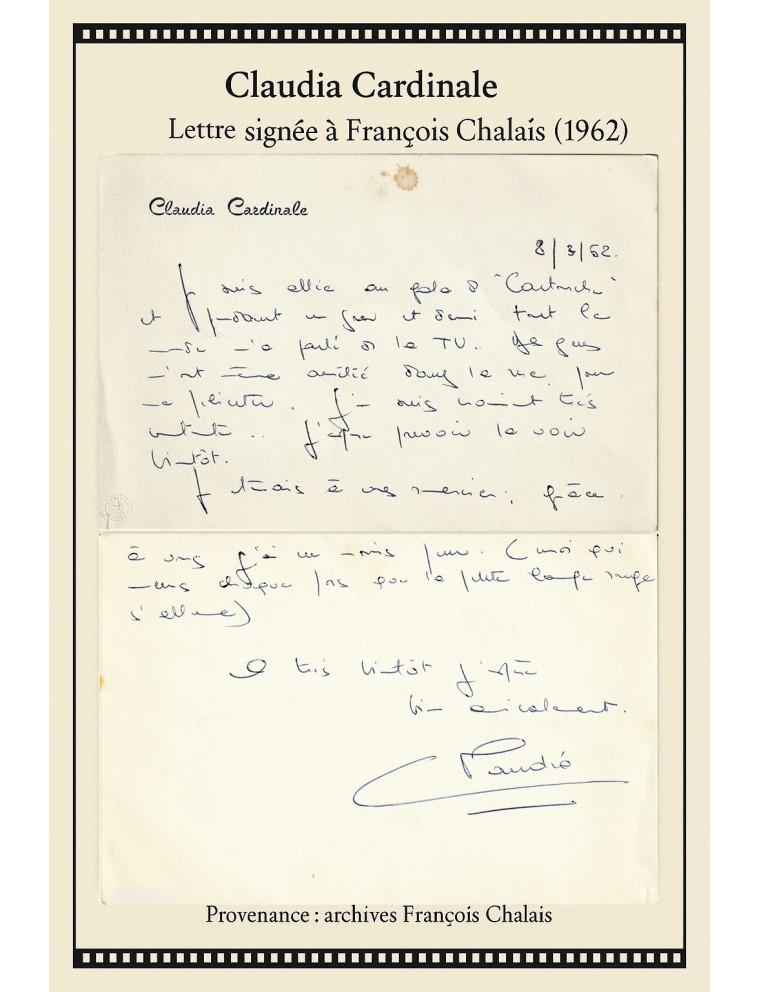 Claudia Cardinale
Lettre signée à François Chalais (1962)
Claudia Cardinale
8/3/62.
Je suis allée au gala de "Cartouche"
et pendant une et demi tout le
monde m'a parlé de la TV. gens
m'ont même dans la rue pour
me féliciter. J'en suis vraiment très
contente.. J'espère pouvoir la voir
bientôt.
Je tenais à vous remercier, grâce
à vous j'ai eu moins peur. (moi qui
meurs chaque fois que la petite lampe rouge
s'allume)
A très bientôt j'espère
bien amicalement.
Claudia
Provenance : archives François Chalais